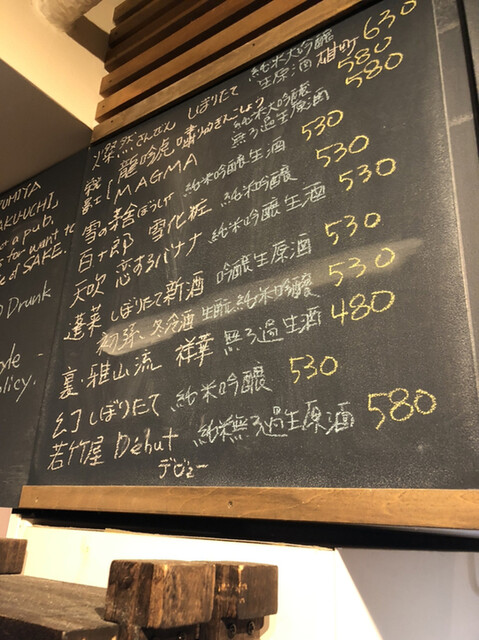 燦然 さんぜん しぼりたて 純米大吟醸 生原酒 雄町 630
龍吟虎嘯 りゅうぎんこしょう 純米大吟醸 580
MAGMA 純米吟醸生酒 無ろ過生原酒 580
雪の茅舎 純米吟醸生酒 530
百十郎 雪化粧 純米吟醸 530
天吹 恋するバナナ 純米吟醸生酒 530
蓬莱 しぼりたて新酒 吟醸生原酒 530
初緑 冬冷酒 生酛純米吟醸 530
裏・雅山流 祥華 無ろ過生酒 480
しぼりたて 純米吟醸 530
若竹屋 Début 純米無ろ過生原酒 580
デビュー
a pub.
for want to
of SAKE.
Drunk